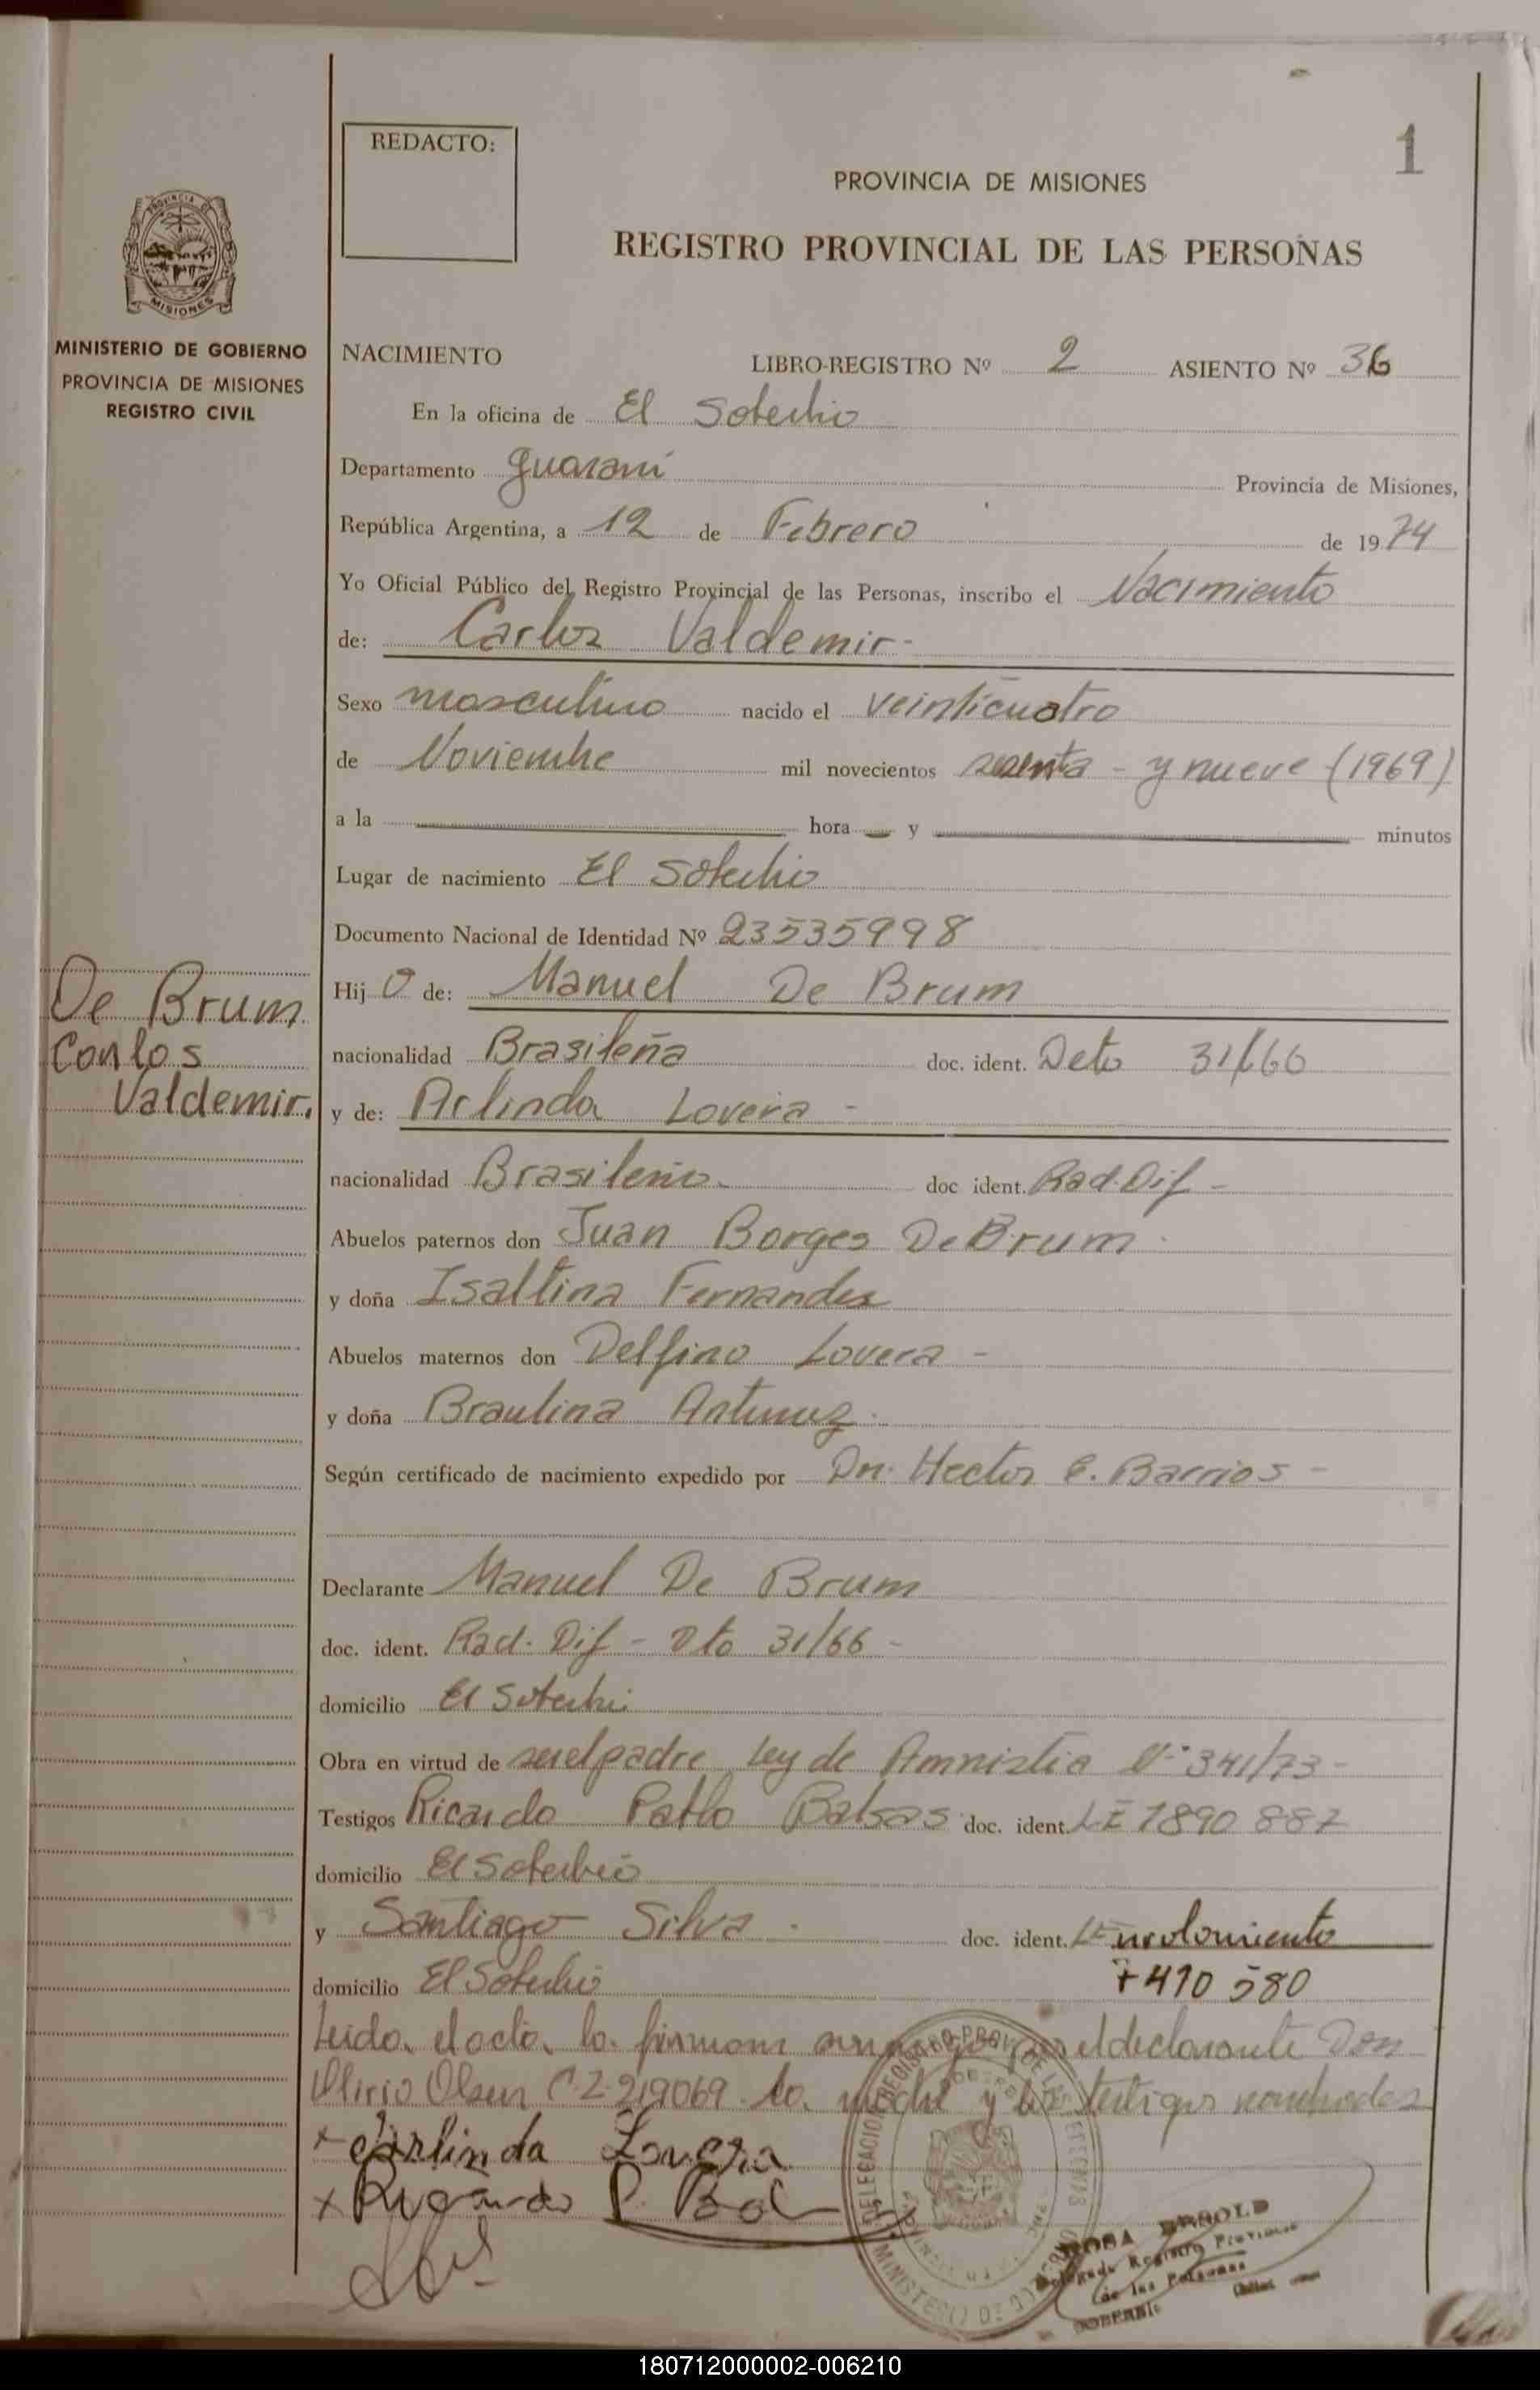 REDACTO:
1
PROVINCIA DE MISIONES
REGISTRO PROVINCIAL DE LAS PERSONAS
PROVINCIA DE
MISIONES
MINISTERIO DE GOBIERNO
PROVINCIA DE MISIONES
REGISTRO CIVIL
NACIMIENTO LIBRO-REGISTRO Nº 2 ASIENTO Nº 36
En la oficina de El Soberbio
Departamento Guarani Provincia de Misiones,
República Argentina, a 12 de Febrero de 1974
Yo Oficial Público del Registro Provincial de las Personas, inscribo el Nacimiento
de: Carlos Valdemir-
Sexo masculino nacido el veinticuatro
de Noviembre mil novecientos sesenta - y nueve (1969)
a la hora y minutos
Lugar de nacimiento El Soberbio
Documento Nacional de Identidad Nº 23535998
Hij o de: Manuel De Brum
De Brum
Carlos
Valdemir.
nacionalidad Brasileña doc. ident. Dcto 31/66
y de: Arlinda Lovera -
nacionalidad Brasileña doc ident. Rad. Dif -
Abuelos paternos don Juan Borges De Brum
y doña Isaltina Fernandes
Abuelos maternos don Delfino Lovera -
y doña Braulina Antunez
Según certificado de nacimiento expedido por Dr. Hector E. Barrios -
Declarante Manuel De Brum
doc. ident. Rad. Dif - Dto 31/66 -
domicilio El Soberbio
Obra en virtud de ser el padre Ley de Amnistia Nº 341/73 -
Testigos Ricardo Pablo Balsas doc. ident. LE 7890 887
domicilio El Soberbio
y Santiago Silva doc. ident. L Enrolamiento
7410 580
domicilio El Soberbio
Leida el acta, la firman conmigo por el declarante Don
Olirio Olsen C.I. 219069 la madre y los testigos nombrados
x Arlinda Lovera
x Ricardo P. Bal
ROSA
Delegada Registro Provincial
de las Personas
SOBERBIO
180712000002-006210